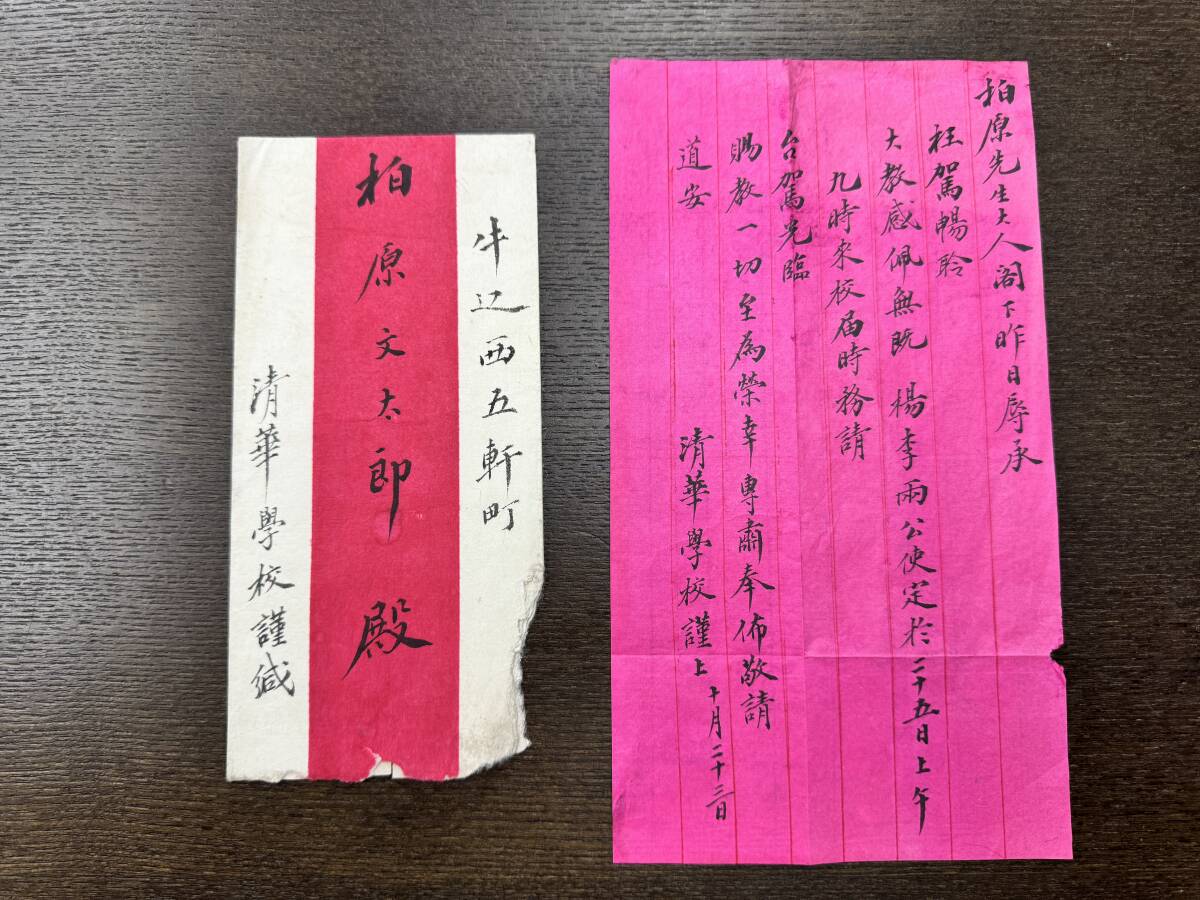 牛込西五軒町
柏原文太郎 殿
清華學校謹緘
柏原先生大人阁下昨日辱承
枉駕暢聆
大教感佩無既 楊李兩公使定於二十五日上午
九時來校届時務請
台駕光臨
賜教一切至為榮幸專肅奉佈敬請
道安
清華學校謹上 十月二十三日